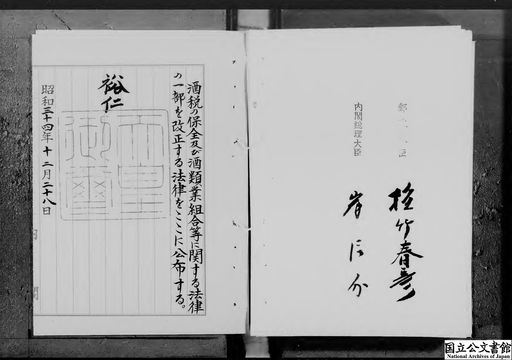 酒税の保全及び酒類業組合等に関する法律
の一部を改正する法律をここに公布する。
裕仁
天皇
御璽
昭和三十四年十二月二十八日
内閣総理大臣
岸信介
植竹春彦
国立公文書館
National Archives of Japan